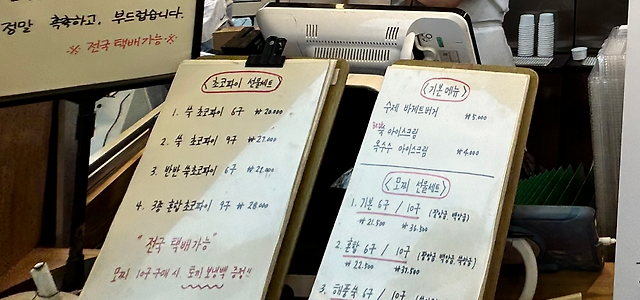 정말 촉촉하고, 부드럽습니다.
※ 전국 택배가능 ※
<초코파이 선물세트>
1. 쑥 초코파이 6구 ₩20.000
2. 쑥 초코파이 9구 ₩27.000
3. 반반 쑥초코파이 6구 ₩21.000
4. 3종 혼합초코파이 9구 ₩28.000
"전국 택배가능"
모찌 10구 구매 시 토끼 보냉백 증정!!
<기본메뉴>
수제 바게트버거 ₩5.000
쑥 아이스크림
옥수수 아이스크림 ₩4.000
<모찌 선물세트>
1. 기본 6구 / 10구
₩21.500 ₩36.500
2. 혼합 6구 / 10구
₩22.500 ₩37.500
3. 해풍쑥 6구 / 10구